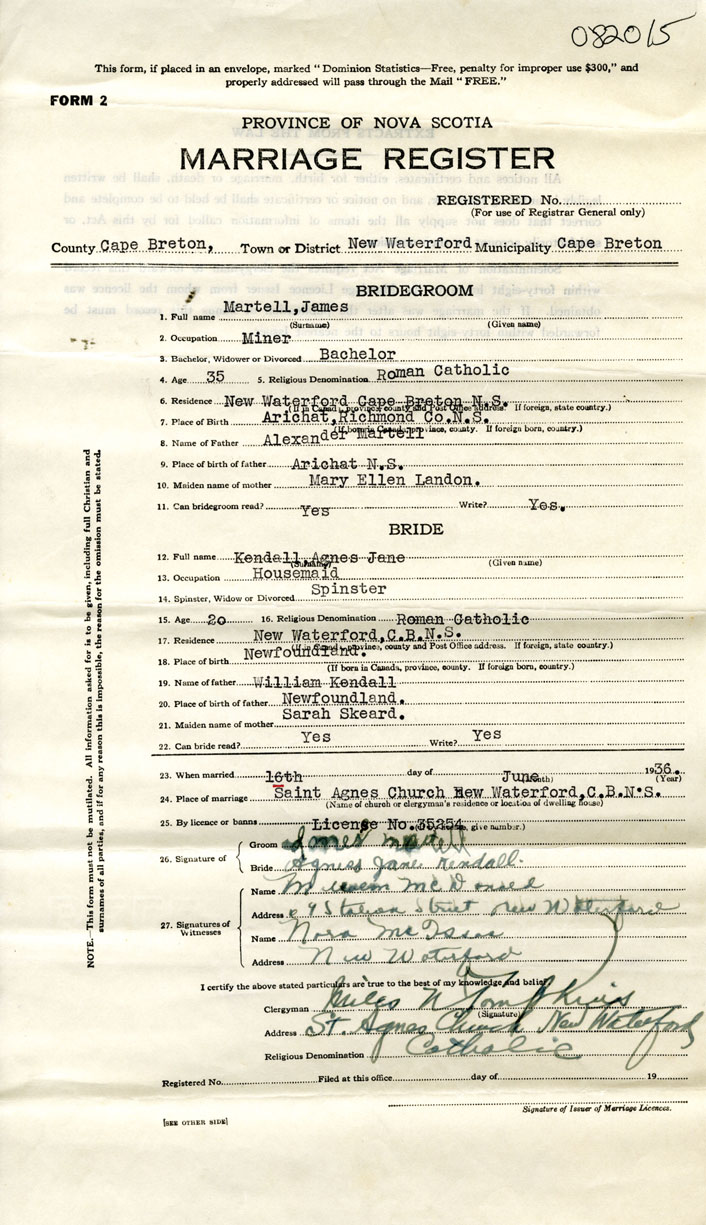 082015
This form, if placed in an envelope, marked "Dominion Statistics—Free, penalty for improper use $300," and
properly addressed will pass through the Mail "FREE."
FORM 2
PROVINCE OF NOVA SCOTIA
MARRIAGE REGISTER
REGISTERED No.
(For use of Registrar General only)
County Cape Breton, Town or District New Waterford Municipality Cape Breton
BRIDEGROOM
1. Full name Martell, James
(Surname) (Given name)
2. Occupation Miner
3. Bachelor, Widower or Divorced Bachelor
4. Age 35 5. Religious Denomination Roman Catholic
6. Residence New Waterford Cape Breton N.S.
(If in Canada, province, county and Post Office address. If foreign, state country.)
7. Place of Birth Arichat, Richmond Co. N.S.
(If born in Canada, province, county. If foreign born, country.)
8. Name of Father Alexander Martell
9. Place of birth of father Arichat N.S.
10. Maiden name of mother Mary Ellen Landon.
11. Can bridegroom read? Yes Write? Yes.
BRIDE
12. Full name Kendall Agnes Jane
(Surname) (Given name)
13. Occupation Housemaid
14. Spinster, Widow or Divorced Spinster
15. Age 20 16. Religious Denomination Roman Catholic
17. Residence New Waterford, C.B.N.S.
(If in Canada, province, county and Post Office address. If foreign, state country.)
18. Place of birth Newfoundland.
(If born in Canada, province, county. If foreign born, country.)
19. Name of father William Kendall
20. Place of birth of father Newfoundland.
21. Maiden name of mother Sarah Skeard.
22. Can bride read? Yes Write? Yes
23. When married 16th day of June 1936.
(Month) (Year)
24. Place of marriage Saint Agnes Church New Waterford, C.B.N.S.
(Name of church or clergyman's residence or location of dwelling house)
25. By licence or banns License No. 35254
(If by licence, give number.)
26. Signature of Groom James Martell
Bride Agness Jane Kendall.
27. Signatures of Witnesses
Name McDonald
Address Street New Waterford
Name Nora McIssac
Address New Waterford
I certify the above stated particulars are true to the best of my knowledge and belief
Clergyman Miles N Tompkins
(Signature)
Address St. Agnes Church New Waterford
Religious Denomination Catholic
Registered No. Filed at this office day of 19
Signature of Issuer of Marriage Licences.
[SEE OTHER SIDE]
NOTE.—This form must not be mutilated. All information asked for is to be given, including full Christian and
surnames of all parties, and if for any reason this is impossible, the reason for the omission must be stated.